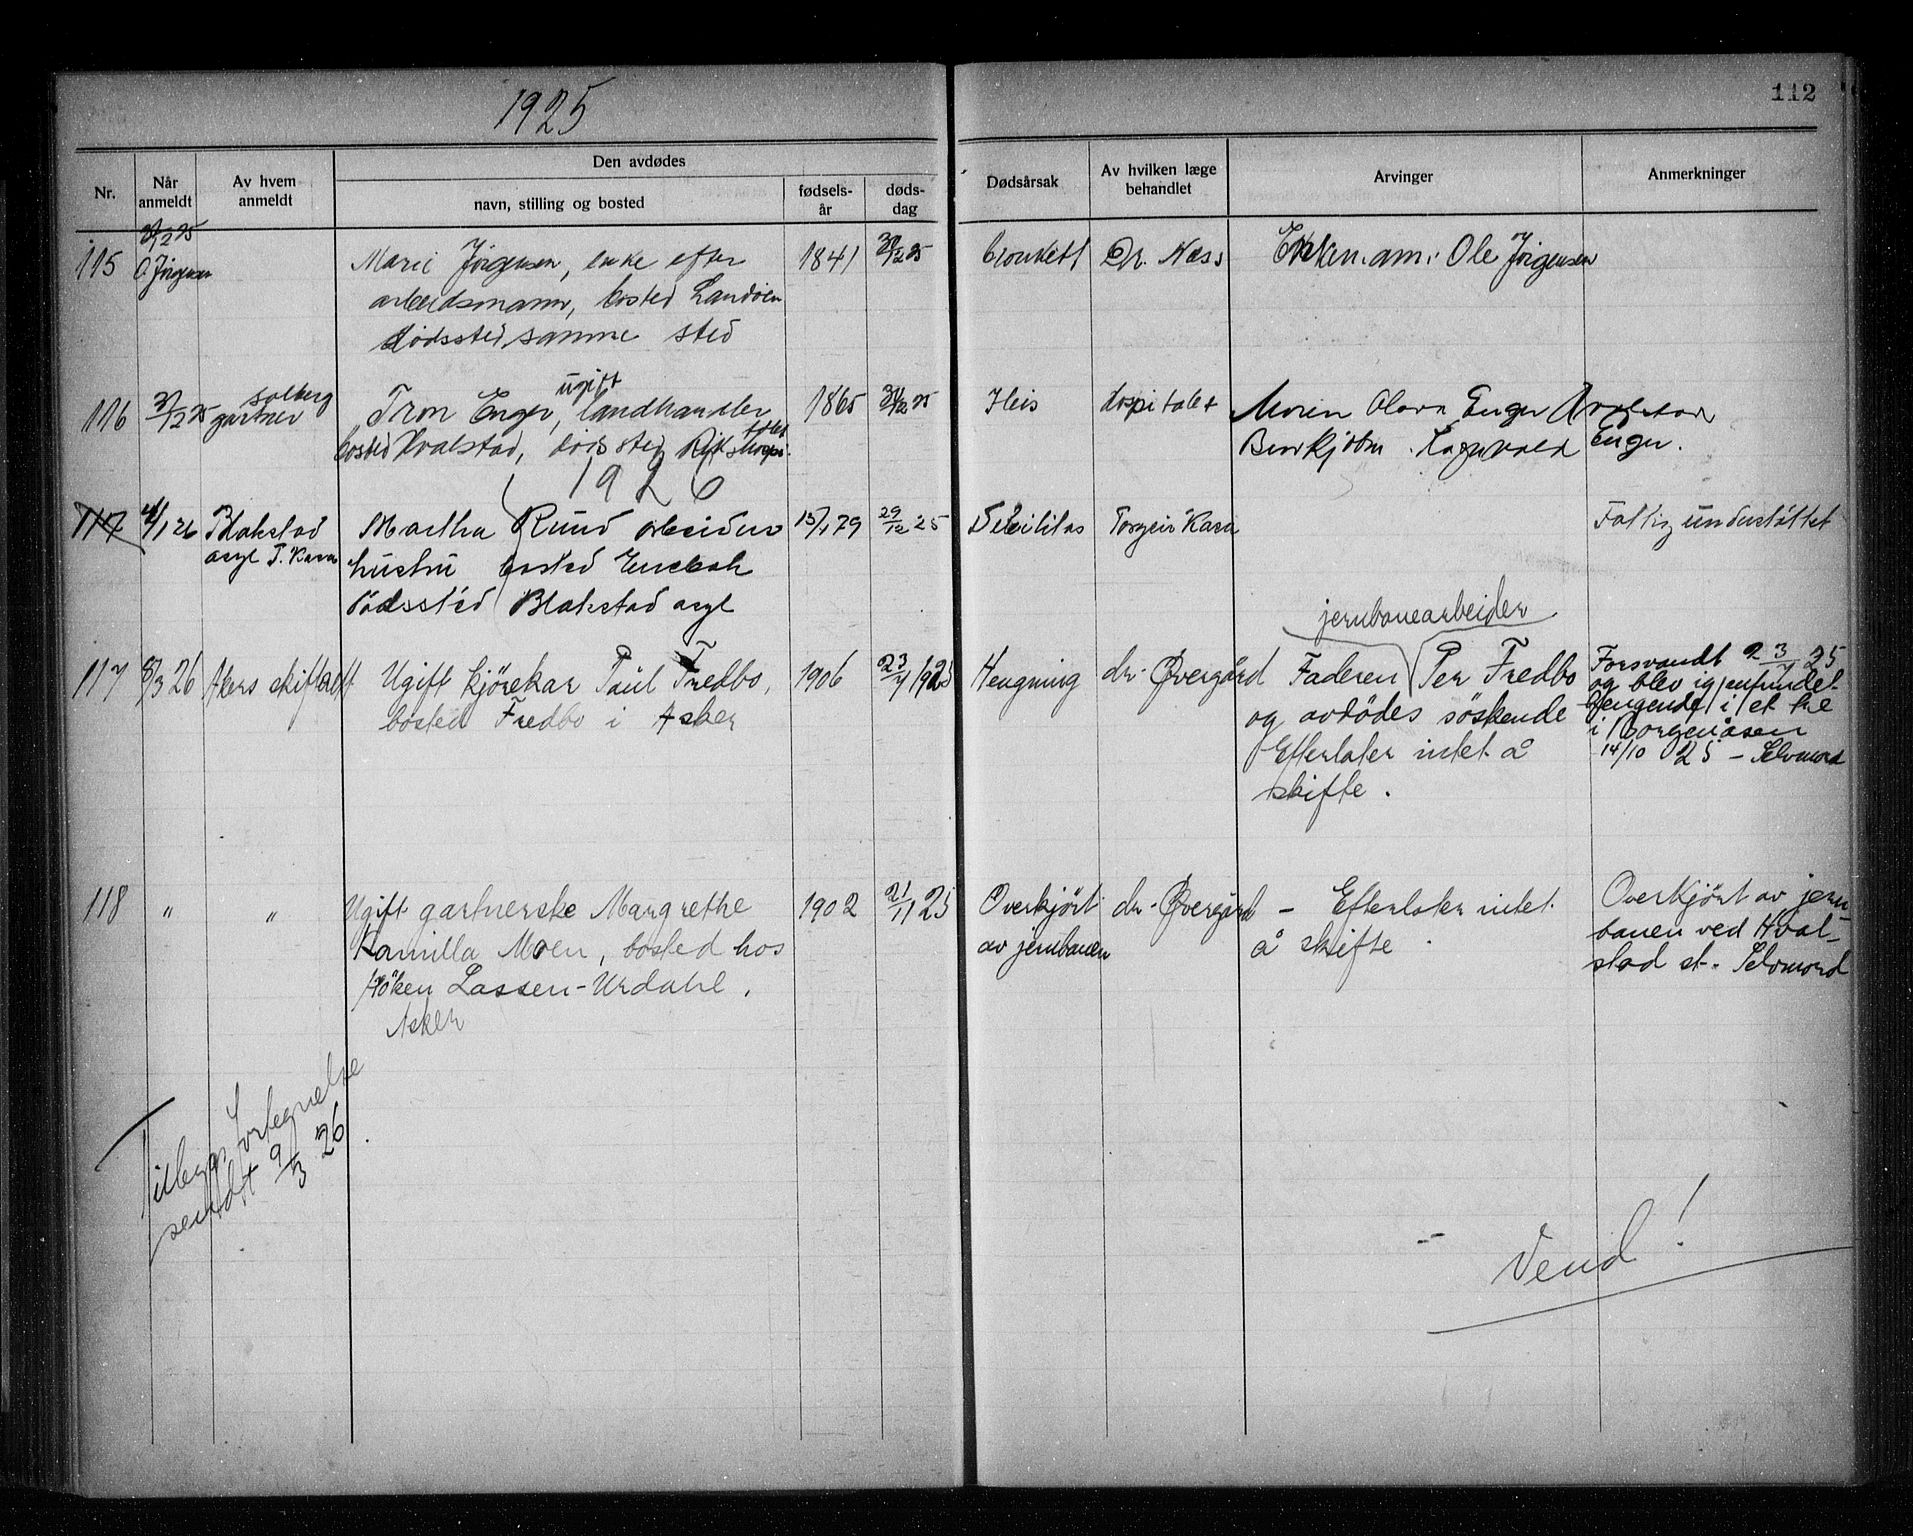 1925
112
Nr.
Når anmeldt
Av hvem anmeldt
Den avdødes
navn, stilling og bosted
fødsels-år
døds-dag
Dødsårsak
Av hvilken læge behandlet
Arvinger
Anmerkninger
115
O. Jörgensen
Marie Jörgensen, enke efter
arbeidsmann, bosted Landöen
dödssted samme sted
1841
Dr. Næss
Ole Jörgensen
116
solberg
gartner
ugift
Tron Enger, landhandler
bosted Hvalstad, dödssted Rikshospi-
talet
1865
31/12 25
Ileis
hospitalet
Enger Hvalstad
Enger.
1926
117
4/1 26
Blakstad
asyl T. Kasa
Martha Ruud arbeider
hustru bosted Enebak
Dödssted Blakstad asyl
15/1 79
29/12 25
Debilitas
Torgeir Kasa
Fattig understöttet
117
8/3 26
Akers skifterett
Ugift kjörekar Paul Fredbo,
bosted Fredbo i Asker
1906
23/4 1925
Hengning
dr. Øvergård
jernbanearbeider
Faderen Per Fredbo
og avdödes söskende
Efterlater intet å
skifte.
Forsvandt 23/4 25
og blev igjenfundet
hengende i et tre
i Borgenåsen
14/10 25 - Selvmord
118
"
"
Ugift gartnerske Margrethe
Kamilla Moen, bosted hos
Håken Lassen-Urdahl,
Asker
1902
21/11 25
Overkjört
av jernbanen
dr. Øvergård
- Efterlater intet
å skifte.
Overkjört av jern-
banen ved Hval-
stad st. Selvmord
Tillegsfortegnelse
sendt 9/3 26.
Vend!